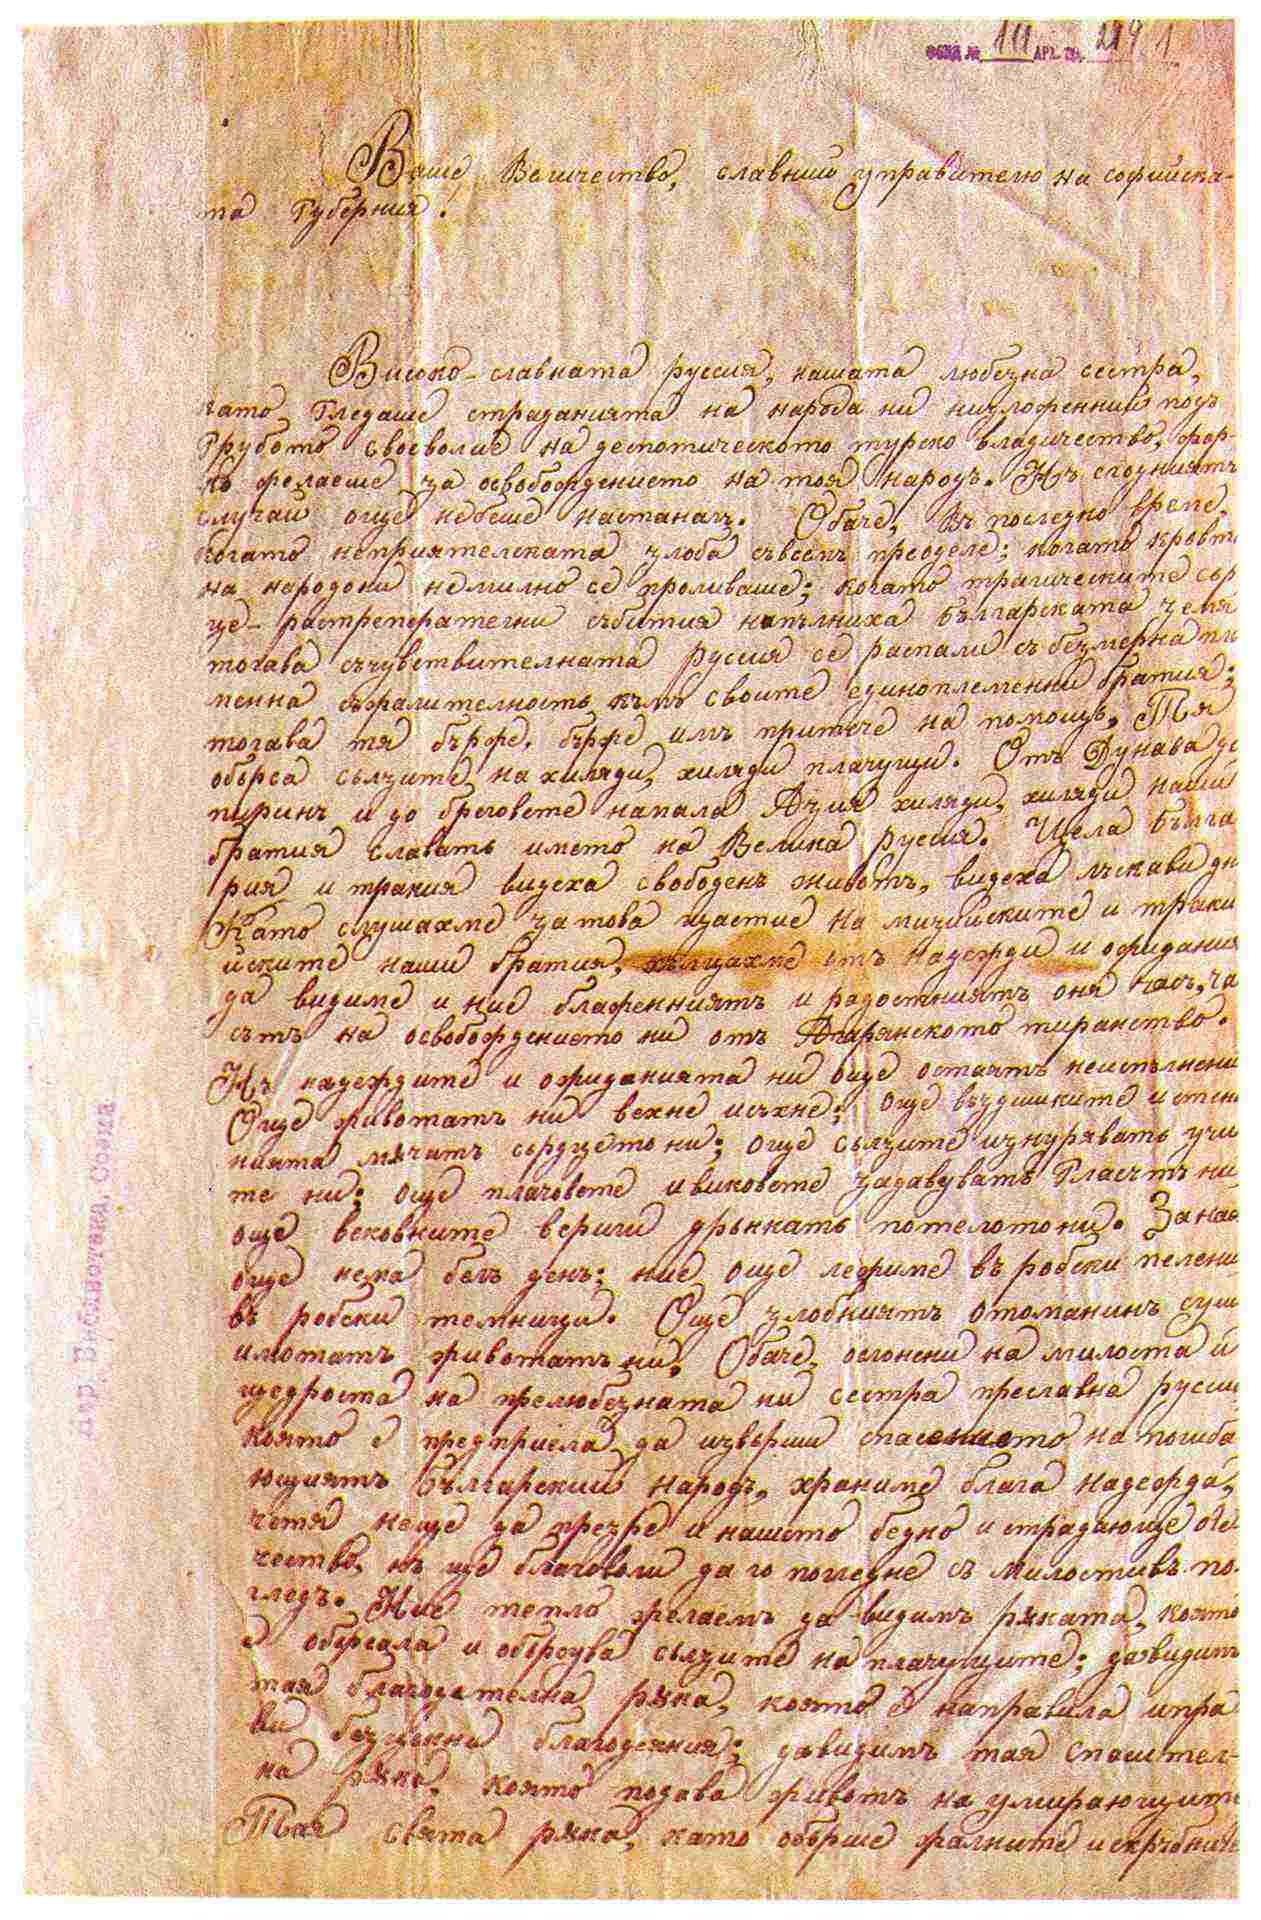 ФОНД № 111 АРХ. ЕД. 214 1
Ваше Величество, славний управителю на софийска-
та Губерния!
Високо-славната Руссия, нашата любезна сестра,
като гледаше страданията на народа ни низложенний подъ
грубото своеволие на деспотическото турско владичество,
желаеше за освобождението на тоя народъ. Нъ сгодниятъ
случай още небеше настаналъ. Обаче, въ последно време,
когато неприятелската злоба съвсемъ преодоле; когато кровта
на народони немилно се проливаше; когато трагическите сър
це-растреператегни събития напълниха Българската земя
тогава съчувствителната Руссия се распали съ безмерна пла
менна съжалителность къмъ своите единоплеменни братия;
тогава тя бърже, бърже имъ притече на помощь. Тя
обърса сълзите на хиляди, хиляди плачущи. Отъ Дунава до
пиринъ и до бреговете напала Азия хиляди, хиляди наши
братия славатъ името на Велика Руссия. Цела Бълга
рия и тракия видеха свободенъ животъ, видеха лъскави дн
Като слушахме за това щастие на мизийските и траки
йските наши братия, хълцахме отъ надежди и ожидания
да видиме и ние блаженниятъ и радостниятъ оня часъ, ча
сътъ на освобождението ни отъ Агарянското тиранство.
Нъ надеждите и ожиданията ни още остаятъ неиспълнени
Още животатъ ни вехне исъхне; още въздишките и стен
нията мѫчатъ сърдцето ни; още сълзите изнуряватъ учи
те ни; още плачовете и виковете задавуватъ Гласътъ ни
още вековните вериги дрънкатъ потелото ни. За нас
още нема белъ денъ; ние още лежиме въ робски пелени
въ робски темници. Още злобниятъ отоманинъ суш
имотатъ животатъ ни. Обаче, ослонени на милоста и
щедроста на прелюбезната ни сестра преславна Руссия
която е предприела да извърши спасението на погиба
ющиятъ Българский народъ, храниме блага надежда,
четя неще да презре и нашето бедно и страдающе оте
чество, нъ ще благоволи да го погледне съ милостивъ по-
гледъ. Ние тепло желаемъ да видимъ рѫката, която
е обърсала и обърсува сълзите на плачущите; да видимъ
тая благодетелна рѫка, която е направила и пра
ви безценни благодеяния; да видимъ тая спасител-
на рѫка, която подава животъ на умирающите
Тая свята рѫка, като обърше жалните и скръбните
Нар. Библиотека, София